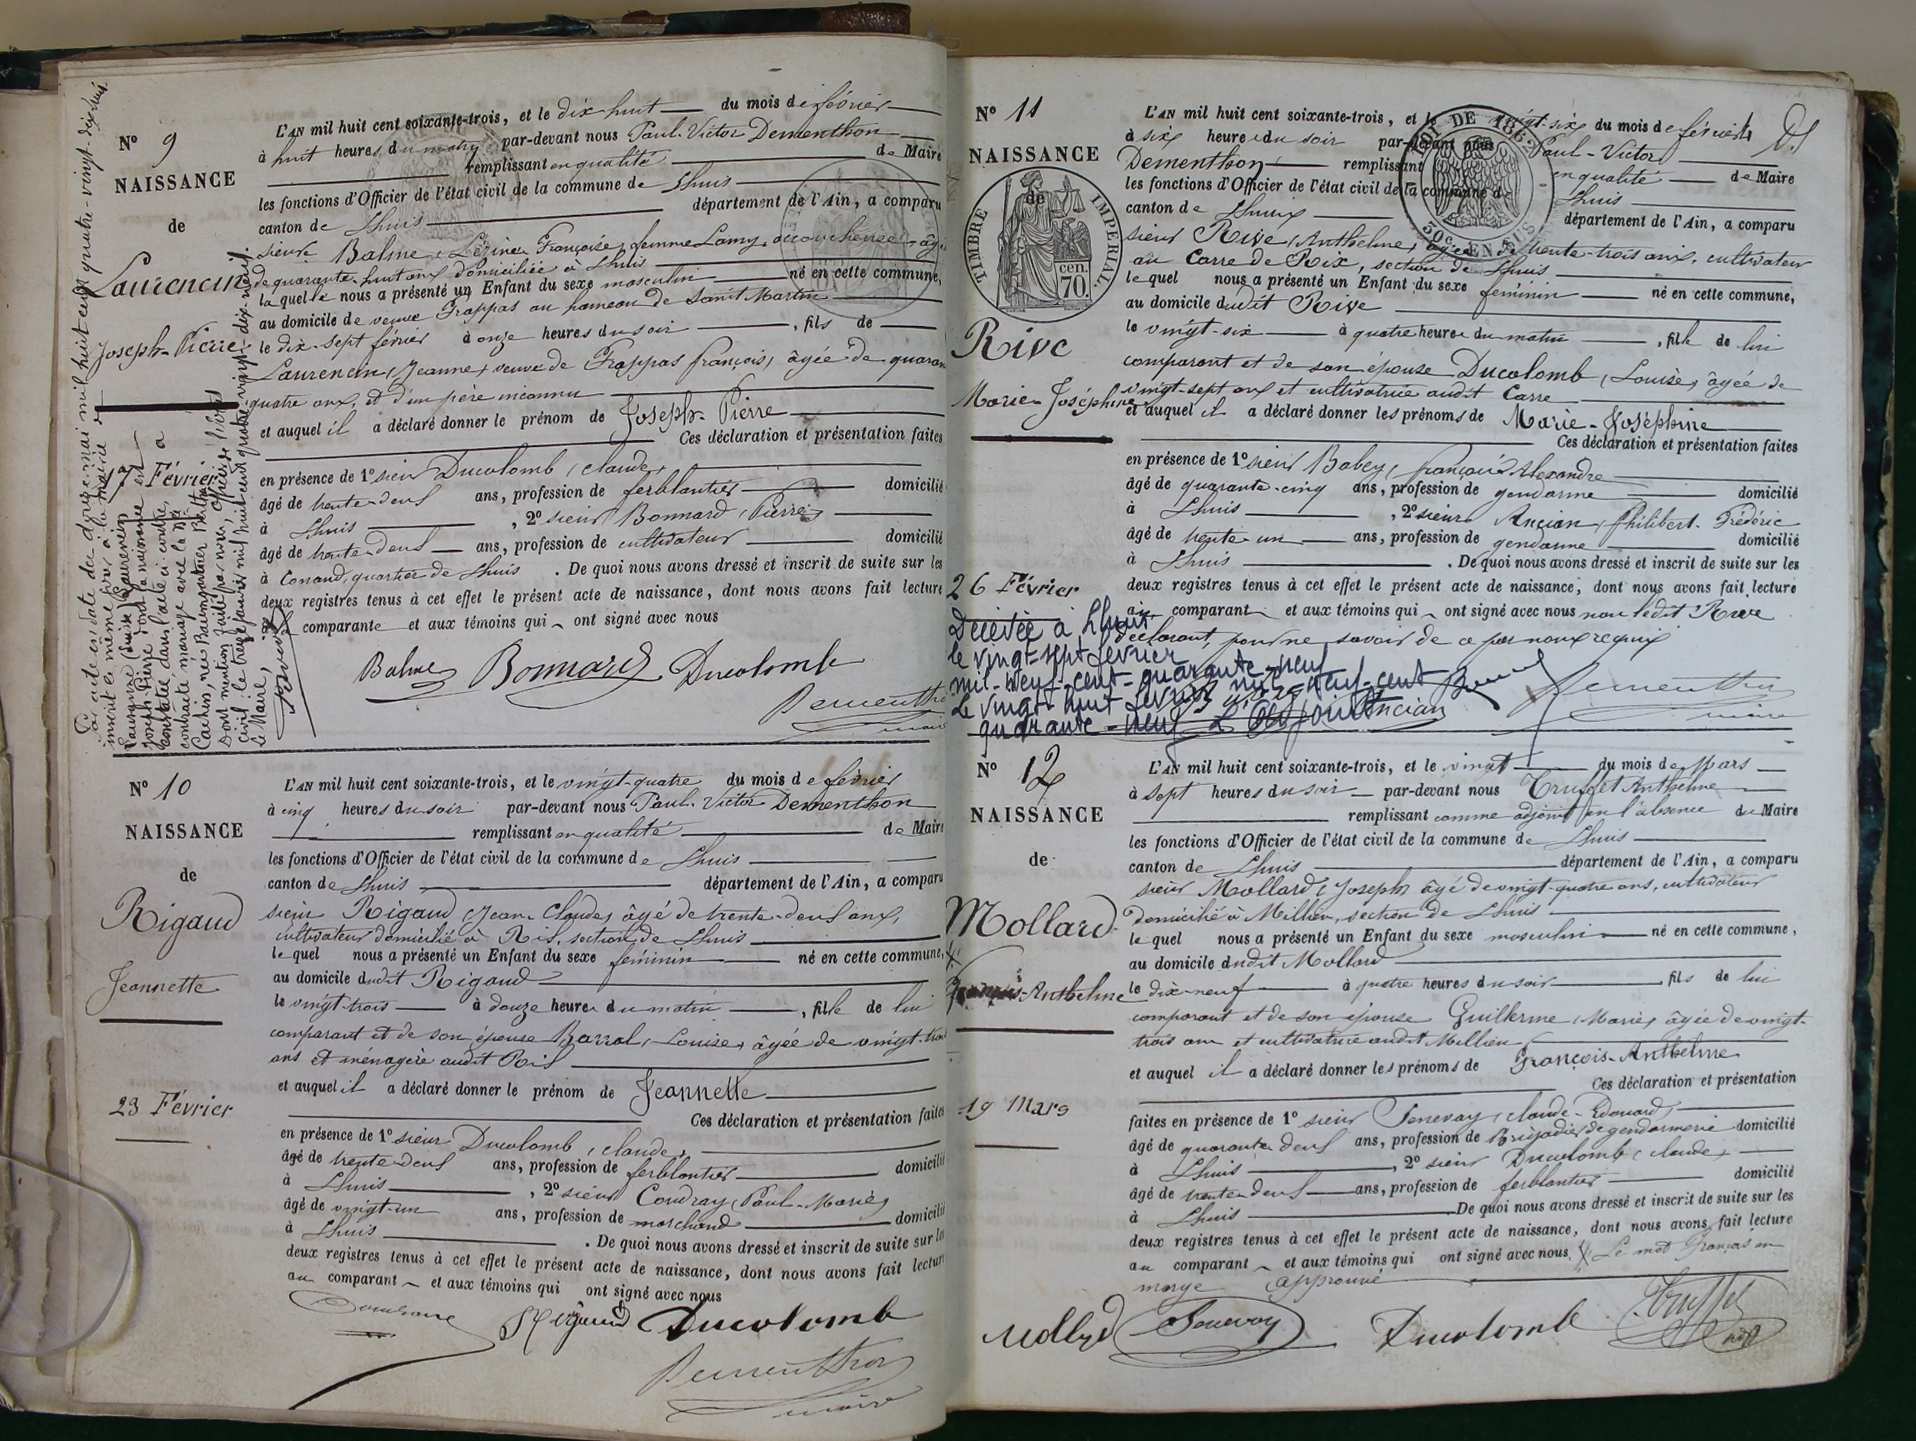 N° 9
NAISSANCE
de
Laurencin
Joseph-Pierre
17 Février
L'AN mil huit cent soixante-trois, et le dix-huit du mois de février
à huit heures du matin par-devant nous Paul-Victor Dementhon
remplissant en qualité de Maire
les fonctions d'Officier de l'état civil de la commune de Lhuis
canton de Lhuis département de l'Ain, a comparu
sieur Balme, Lérine Françoise, femme Lamy, accoucheuse, âgée
de quarante-huit ans domiciliée à Lhuis
laquelle nous a présenté un Enfant du sexe masculin né en cette commune,
au domicile de veuve Frappas au hameau de Saint Martin
le dix-sept février à onze heures du soir, fils de
Laurencin, Jeanne, veuve de Frappas françois, âgée de quarante
quatre ans, et d'un père inconnu
et auquel il a déclaré donner le prénom de Joseph-Pierre
Ces déclaration et présentation faites
en présence de 1° sieur Ducolomb, claude,
âgé de trente-deux ans, profession de ferblantier domicilié
à Lhuis, 2° sieur Bonnard, Pierre,
âgé de trente-deux ans, profession de cultivateur domicilié
à Conand, quartier de Lhuis. De quoi nous avons dressé et inscrit de suite sur les
deux registres tenus à cet effet le présent acte de naissance, dont nous avons fait lecture
comparante et aux témoins qui ont signé avec nous
Balme Bonnard Ducolomb
Dementhon
maire
Par acte en date du douze mai mil huit cent quatre-vingt-dix-huit
Laurencin
Joseph Pierre dont la naissance est
constatée dans l'acte ci-contre, a
contracté mariage avec la
née Baumgartner Bertha
Dont mention faite par nous, officier de l'état
civil, le treize janvier mil huit cent quatre-vingt-dix-neuf.
Le Maire,
N° 10
NAISSANCE
de
Rigaud
Jeannette
23 Février
L'AN mil huit cent soixante-trois, et le vingt-quatre du mois de février
à cinq heures du soir par-devant nous Paul-Victor Dementhon
remplissant en qualité de Maire
les fonctions d'Officier de l'état civil de la commune de Lhuis
canton de Lhuis département de l'Ain, a comparu
sieur Rigaud, Jean-Claude, âgé de trente-deux ans,
cultivateur domicilié à Rix, section de Lhuis
lequel nous a présenté un Enfant du sexe féminin né en cette commune,
au domicile dudit Rigaud
le vingt-trois à douze heures du matin, fille de lui
comparant et de son épouse Barral, Louise, âgée de vingt-trois
ans et ménagère audit Rix
et auquel il a déclaré donner le prénom de Jeannette
Ces déclaration et présentation faites
en présence de 1° sieur Ducolomb, claude,
âgé de trente-deux ans, profession de ferblantier domicilié
à Lhuis, 2° sieur Coudray, Paul-Marie,
âgé de vingt-un ans, profession de marchand domicilié
à Lhuis. De quoi nous avons dressé et inscrit de suite sur les
deux registres tenus à cet effet le présent acte de naissance, dont nous avons fait lecture
au comparant et aux témoins qui ont signé avec nous
Rigaud Ducolomb
Dementhon
maire
N° 11
NAISSANCE
de
TIMBRE IMPERIAL
70 cen.
Rive
Marie-Joséphine
26 Février
Décédée à Lhuis
le vingt-sept février
mil-neuf-cent-quarante-neuf
Le vingt-huit février mil-neuf-cent
quarante-neuf L'Adjoint
L'AN mil huit cent soixante-trois, et le vingt-six du mois de février
à six heures du soir par-devant nous Paul-Victor
Dementhon remplissant en qualité de Maire
les fonctions d'Officier de l'état civil de la commune de Lhuis
canton de Lhuis département de l'Ain, a comparu
sieur Rive, Anthelme, âgé de trente-trois ans, cultivateur
au Carre de Rix, section de Lhuis
lequel nous a présenté un Enfant du sexe féminin né en cette commune,
au domicile dudit Rive
le vingt-six à quatre heures du matin, fille de lui
comparant et de son épouse Ducolomb, Louise, âgée de
vingt-sept ans et cultivatrice audit Carre
et auquel il a déclaré donner les prénoms de Marie-Joséphine
Ces déclaration et présentation faites
en présence de 1° sieur Babey, françois Alexandre
âgé de quarante-cinq ans, profession de gendarme domicilié
à Lhuis, 2° sieur Ancian, Philibert-Frédéric
âgé de trente-un ans, profession de gendarme domicilié
à Lhuis. De quoi nous avons dressé et inscrit de suite sur les
deux registres tenus à cet effet le présent acte de naissance, dont nous avons fait lecture
au comparant et aux témoins qui ont signé avec nous non ledit Rive
déclarant, pour ne savoir de ce par nous requis
Ancian Dementhon
maire
N° 12
NAISSANCE
de
Mollard
François-Anthelme
19 Mars
L'AN mil huit cent soixante-trois, et le vingt du mois de Mars
à sept heures du soir par-devant nous Truffet Anthelme
remplissant comme adjoint en l'absence du Maire
les fonctions d'Officier de l'état civil de la commune de Lhuis
canton de Lhuis département de l'Ain, a comparu
sieur Mollard, Joseph, âgé de vingt-quatre ans, cultivateur
domicilié à Millieu, section de Lhuis
lequel nous a présenté un Enfant du sexe masculin né en cette commune,
au domicile dudit Mollard
le dix-neuf à quatre heures du soir fils de lui
comparant et de son épouse Guillerme, Marie, âgée de vingt-
trois ans et cultivatrice audit Millieu
et auquel il a déclaré donner les prénoms de François-Anthelme
Ces déclaration et présentation
faites en présence de 1° sieur Jenevay, claude-Edouard,
âgé de quarante-deux ans, profession de Brigadier de gendarmerie domicilié
à Lhuis, 2° sieur Ducolomb, claude,
âgé de trente-deux ans, profession de ferblantier domicilié
à Lhuis. De quoi nous avons dressé et inscrit de suite sur les
deux registres tenus à cet effet le présent acte de naissance, dont nous avons fait lecture
au comparant et aux témoins qui ont signé avec nous. Le mot François en
marge approuvé
Mollard Jenevay Ducolomb Truffet